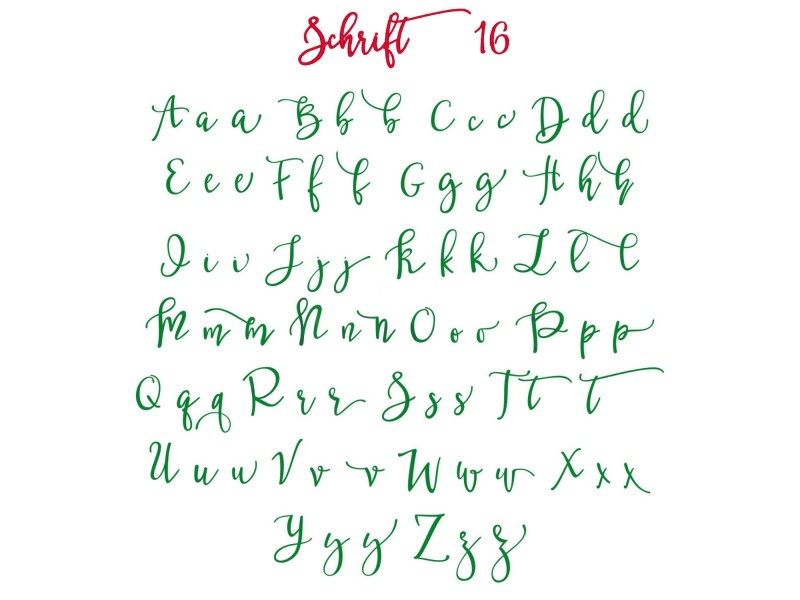 Schrift 16
A a a B b b C c c D d d
E e e F f f G g g H h h
I i i J j j K k k L l l
M m m N n n O o o P p p
Q q q R r r S s s T t t
U u u V v v W w w X x x
Y y y Z z z